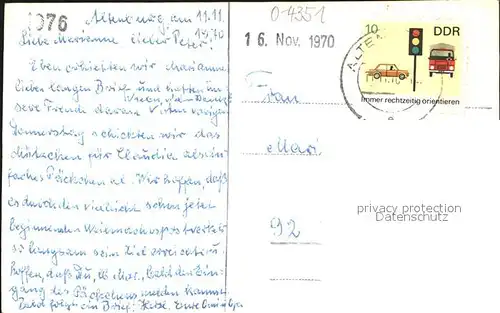 1976
Altenburg, am 11.11.
1970
Liebe Marianne lieber Peter!
Eben erhielten wir Mariannes
lieben langen Brief und hatten
Freude daran
Donnerstag schickten wir das
für Claudia als ein-
faches Päckchen ab. Wir hoffen, daß
es durch den vielleicht schon jetzt
beginnenden Weihnachtspostverkehr
so langsam sein Ziel erreicht u.
hoffen, daß Du, bald den Ein-
gang des Päckchens melden kannst.
Bald folgt ein Brief. Herzl. Eure
0-4351
16. Nov. 1970
10
DDR
ALTEN
Immer rechtzeitig orientieren
Frau
Mari
92
privacy protection
Datenschutz